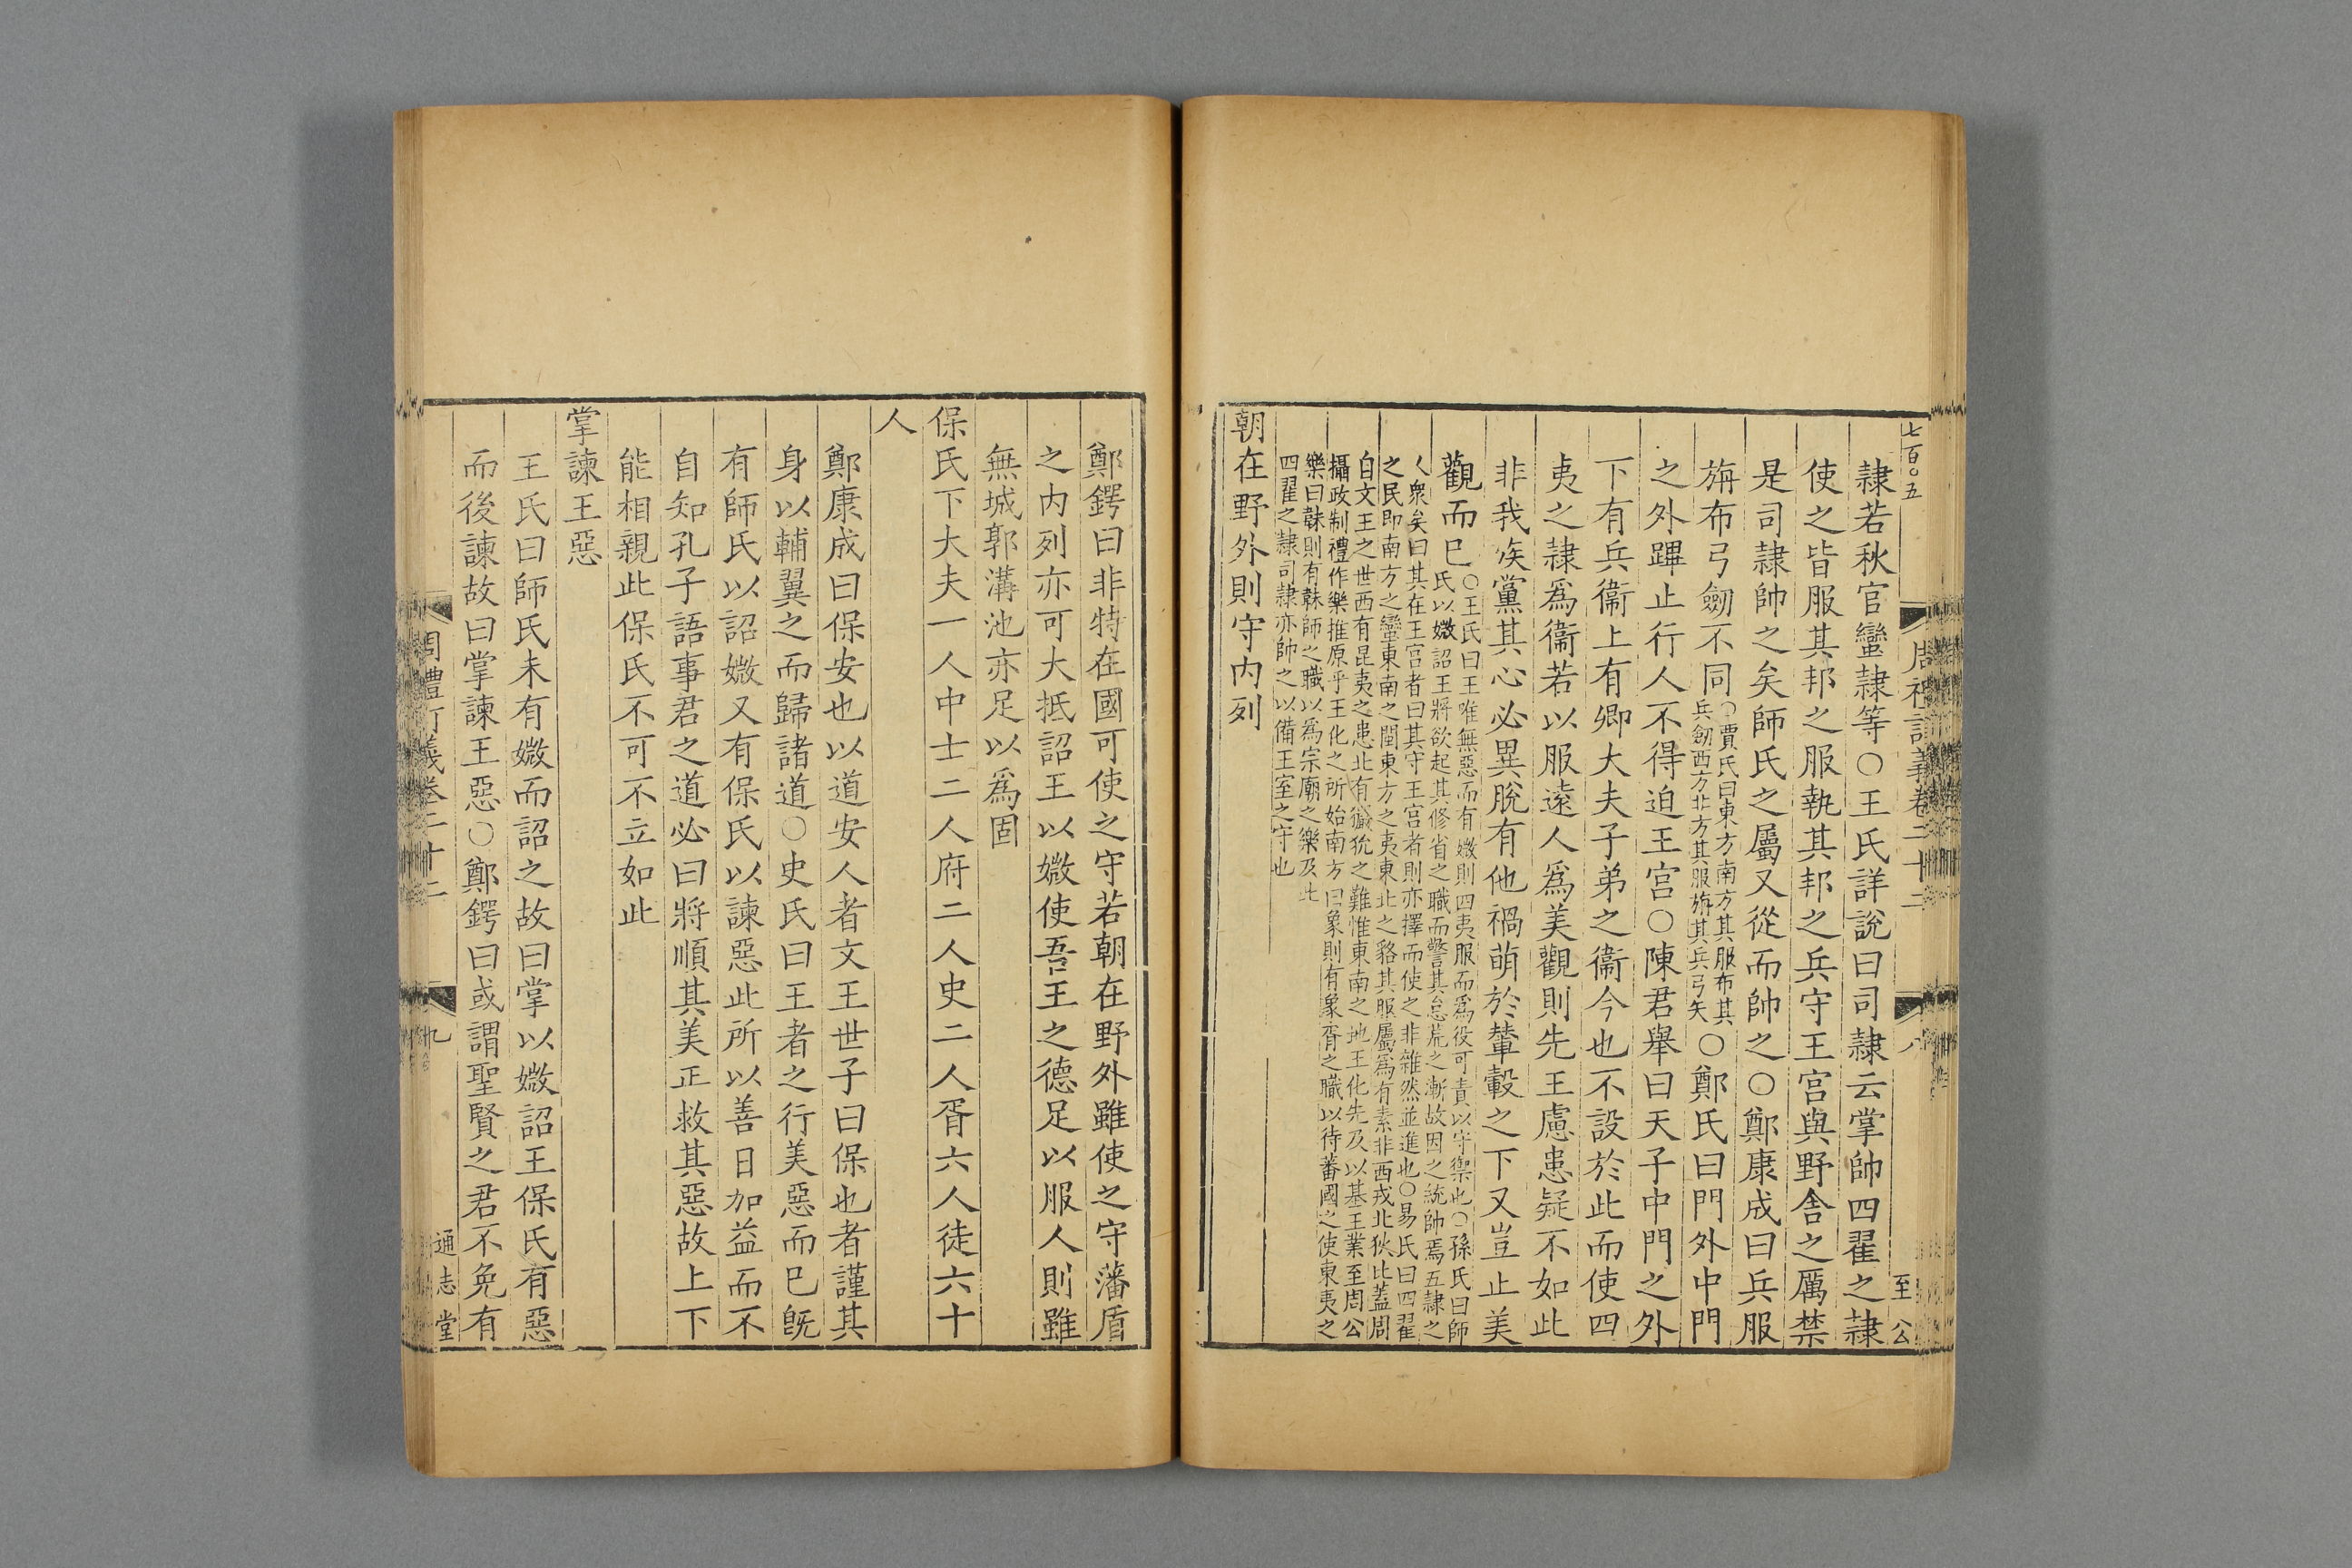 七百〇五
周禮訂義卷二十二
八
至 公
隸若秋官蠻隸等○王氏詳說曰司隸云掌帥四翟之隸
使之皆服其邦之服執其邦之兵守王宫與野舎之厲禁
是司隸帥之矣師氏之屬又從而帥之○鄭康成曰兵服
旃布弓劒不同○賈氏曰東方南方其服布其
兵劒西方北方其服旃其兵弓矢○鄭氏曰門外中門
之外蹕止行人不得迫王宫○陳君舉曰天子中門之外
下有兵衞上有卿大夫子弟之衞今也不設於此而使四
夷之隸爲衞若以服遠人爲美觀則先王慮患疑不如此
非我族黨其心必異脫有他禍萌於輦轂之下又豈止美
觀而已○王氏曰王唯無惡而有媺則四夷服而爲役可責以守禦也○孫氏曰師
氏以媺詔王將欲起其修省之職而警其怠荒之漸故因之統帥焉五隸之
人衆矣曰其在王宫者曰其守王宫者則亦擇而使之非雜然並進也○易氏曰四翟
之民即南方之蠻東南之閩東方之夷東北之貉其服屬爲有素非西戎北狄比蓋周
自文王之世西有昆夷之患北有玁狁之難惟東南之地王化先及以基王業至周公
攝政制禮作樂推原乎王化之所始南方曰象則有象胥之職以待蕃國之使東夷之
樂曰韎則有韎師之職以爲宗廟之樂及此
四翟之隸司隸亦帥之以備王室之守也
朝在野外則守内列
鄭鍔曰非特在國可使之守若朝在野外雖使之守藩盾
之内列亦可大抵詔王以媺使吾王之德足以服人則雖
無城郭溝池亦足以爲固
保氏下大夫一人中士二人府二人史二人胥六人徒六十
人
鄭康成曰保安也以道安人者文王世子曰保也者謹其
身以輔翼之而歸諸道○史氏曰王者之行美惡而已旣
有師氏以詔媺又有保氏以諫惡此所以善日加益而不
自知孔子語事君之道必曰將順其美正救其惡故上下
能相親此保氏不可不立如此
掌諫王惡
王氏曰師氏未有媺而詔之故曰掌以媺詔王保氏有惡
而後諫故曰掌諫王惡○鄭鍔曰或謂聖賢之君不免有
周禮訂義卷二十二
九
通志堂